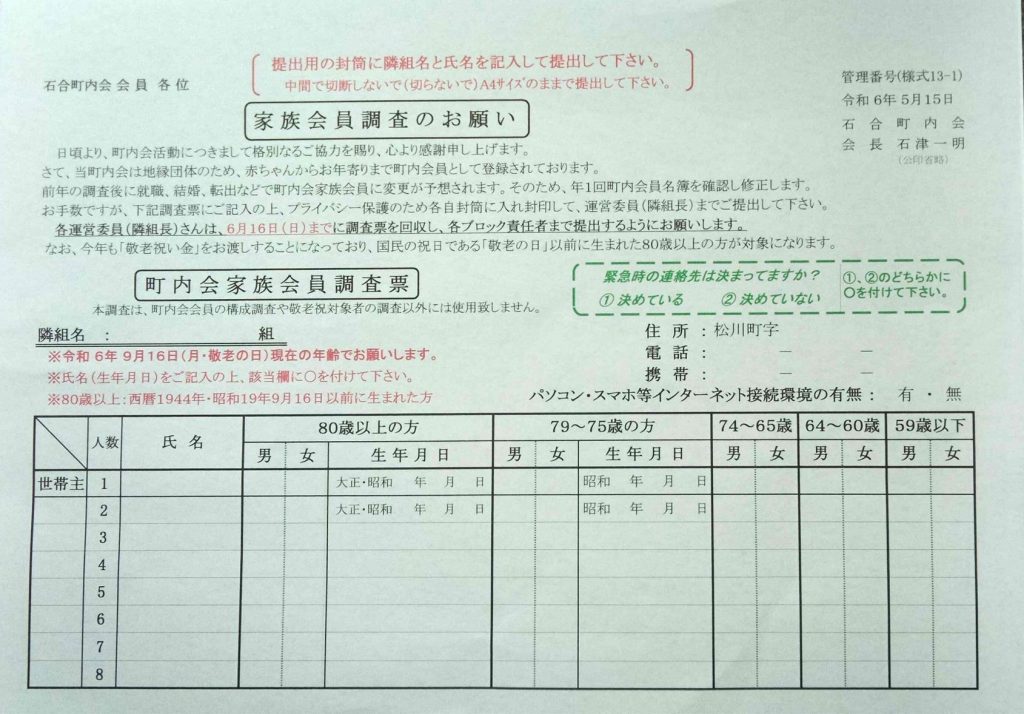 提出用の封筒に隣組名と氏名を記入して提出して下さい。
中間で切断しないで(切らないで)A4サイズのままで提出して下さい。
石合町内会 会員 各位
管理番号(様式13-1)
令和 6年 5月15日
石合町内会
会長 石津一明
(公印省略)
家族会員調査のお願い
日頃より、町内会活動につきまして格別なるご協力を賜り、心より感謝申し上げます。
さて、当町内会は地縁団体のため、赤ちゃんからお年寄りまで町内会員として登録されております。
前年の調査後に就職、結婚、転出などで町内会家族会員に変更が予想されます。そのため、年1回町内会員名簿を確認し修正します。
お手数ですが、下記調査票にご記入の上、プライバシー保護のため各自封筒に入れ封印して、運営委員(隣組長)までご提出して下さい。
各運営委員(隣組長)さんは、6月16日(日)までに調査票を回収し、各ブロック責任者まで提出するようにお願いします。
なお、今年も「敬老祝い金」をお渡しすることになっており、国民の祝日である「敬老の日」以前に生まれた80歳以上の方が対象になります。
町内会家族会員調査票
本調査は、町内会会員の構成調査や敬老祝対象者の調査以外には使用致しません。
緊急時の連絡先は決まってますか？
① 決めている ② 決めていない
①、②のどちらかに
〇を付けて下さい。
隣組名 ： 組
住所 ：松川町字
電話 ： － －
携帯 ： － －
※令和 6年 9月16日(月・敬老の日)現在の年齢でお願いします。
※氏名(生年月日)をご記入の上、該当欄に〇を付けて下さい。
※80歳以上：西暦1944年・昭和19年9月16日以前に生まれた方
パソコン・スマホ等インターネット接続環境の有無： 有 ・ 無
人数 氏名 80歳以上の方 79～75歳の方 74～65歳 64～60歳 59歳以下
男 女 生年月日 男 女 生年月日 男 女 男 女 男 女
世帯主 1 大正・昭和 年 月 日 昭和 年 月 日
2 大正・昭和 年 月 日 昭和 年 月 日
3
4
5
6
7
8